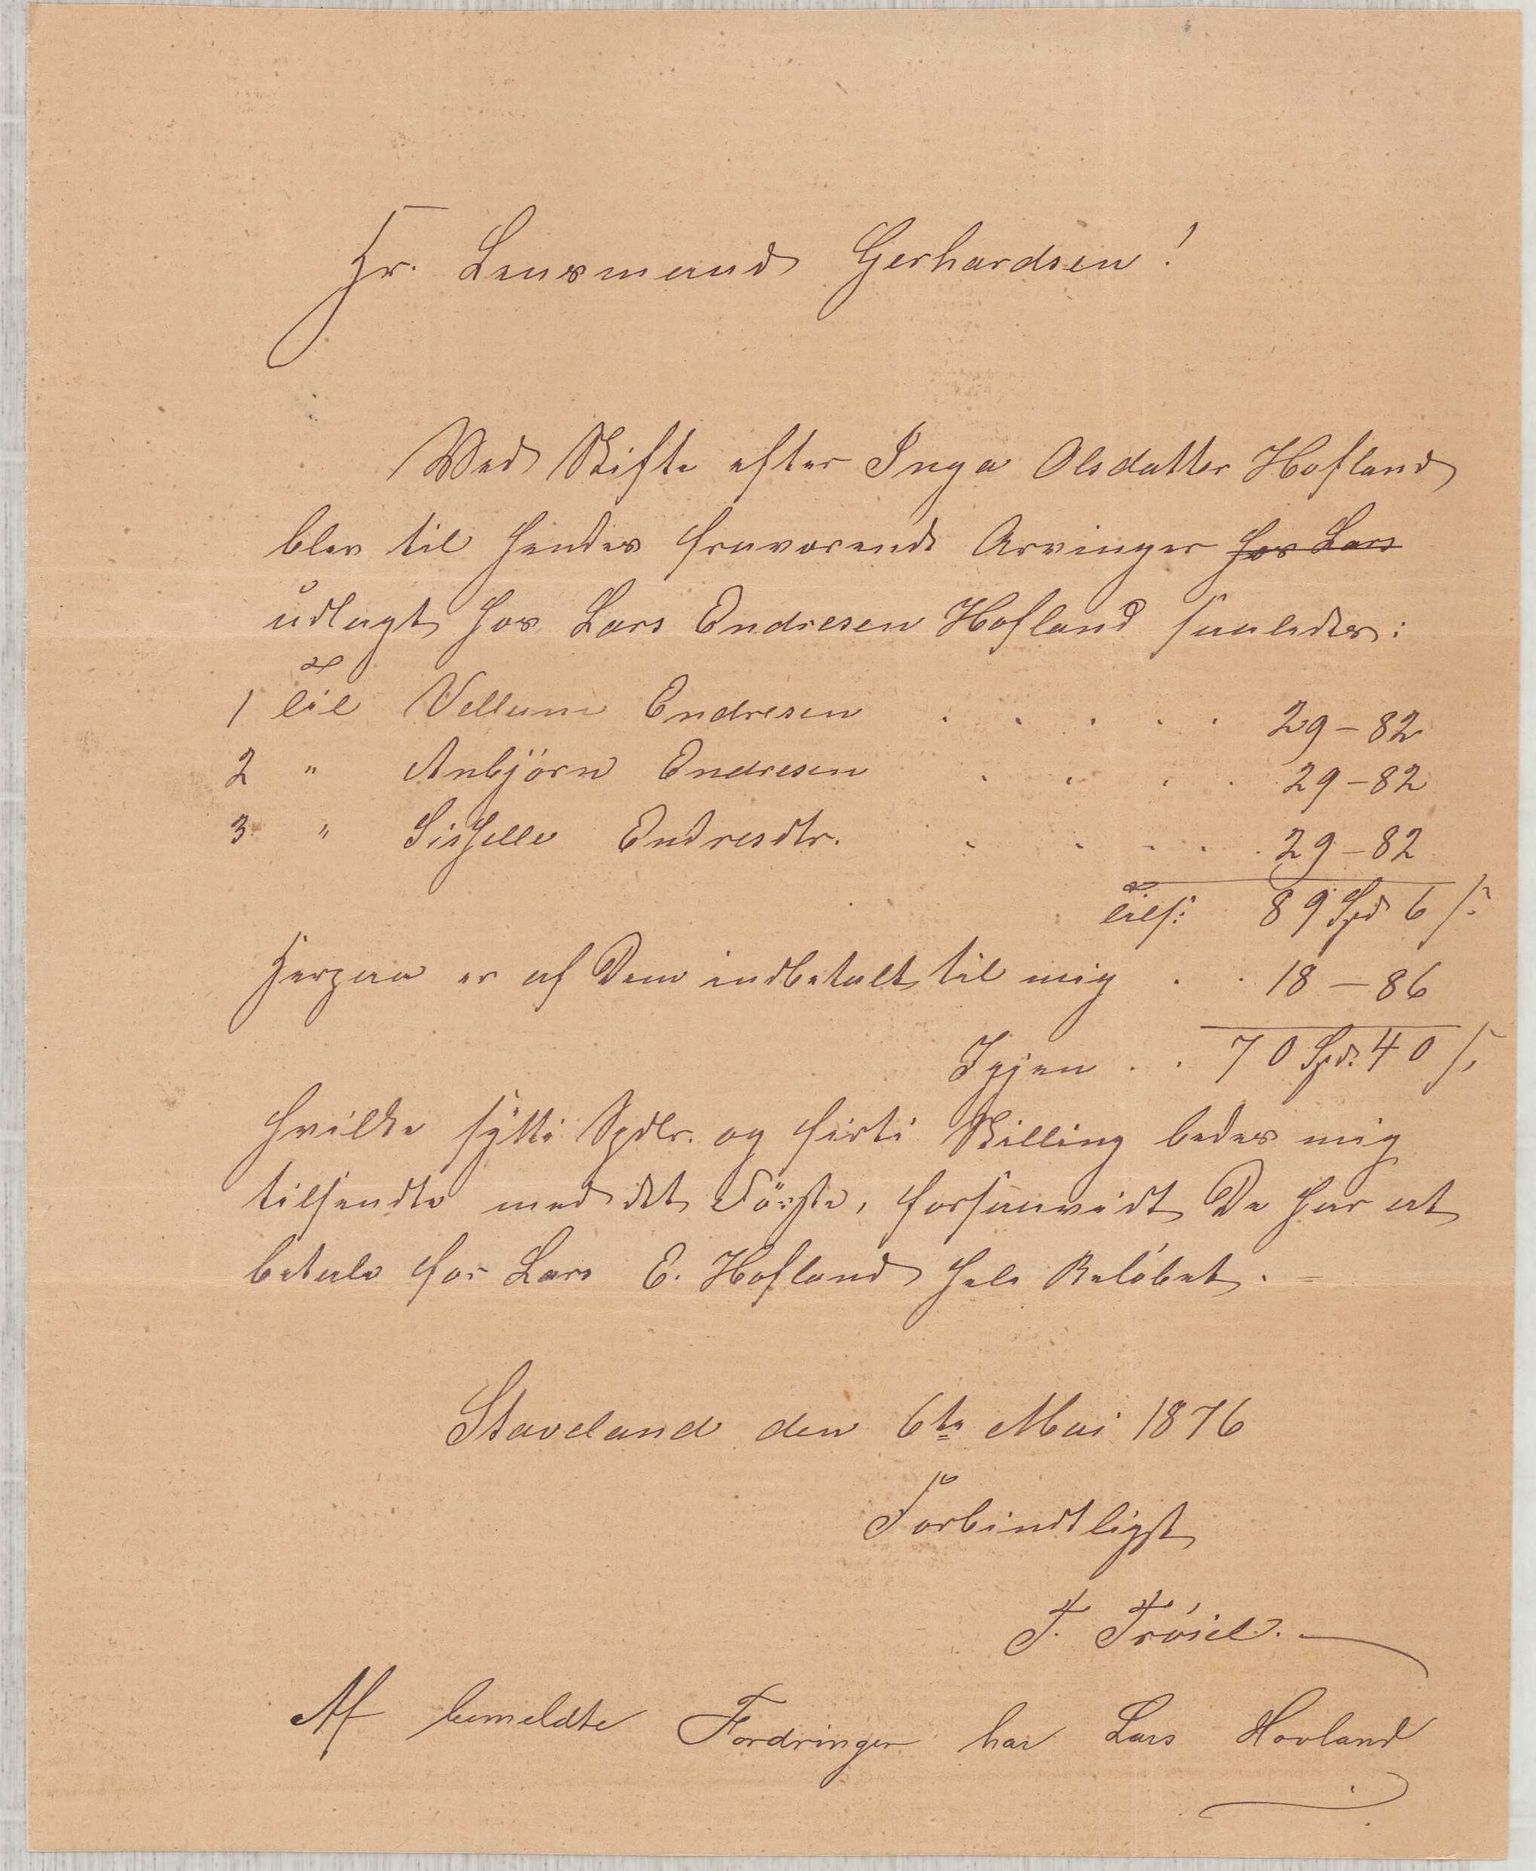 Hr. Lensmand Gerhardsen!
Ved Skifte efter Inga Olsdatter Hofland
blev til hendes fraværende Arvinger hos Lars
udlagt hos Lars Endresen Hofland saaledes:
1 til Vellum Endresen . . . . . 29 - 82
2 " Anbjörn Endresen . . . . 29 - 82
3 " Sisselle Endresdtr. . . . . . 29 - 82
tils: 89 Spd 6 s.
Herpaa er af Dem indbetalt til mig . . 18 - 86
Igjen . . 70 Spd. 40 s.
hvilke sytti Spdlr. og firti Skilling bedes mig
tilsendte med det Første, forsaavidt De har at
betale for Lars E. Hofland hele Beløbet. =
Staveland den 6te Mai 1876
Forbindtligst
T. Tröiel.
Af bemeldte Fordringer har Lars Hovland